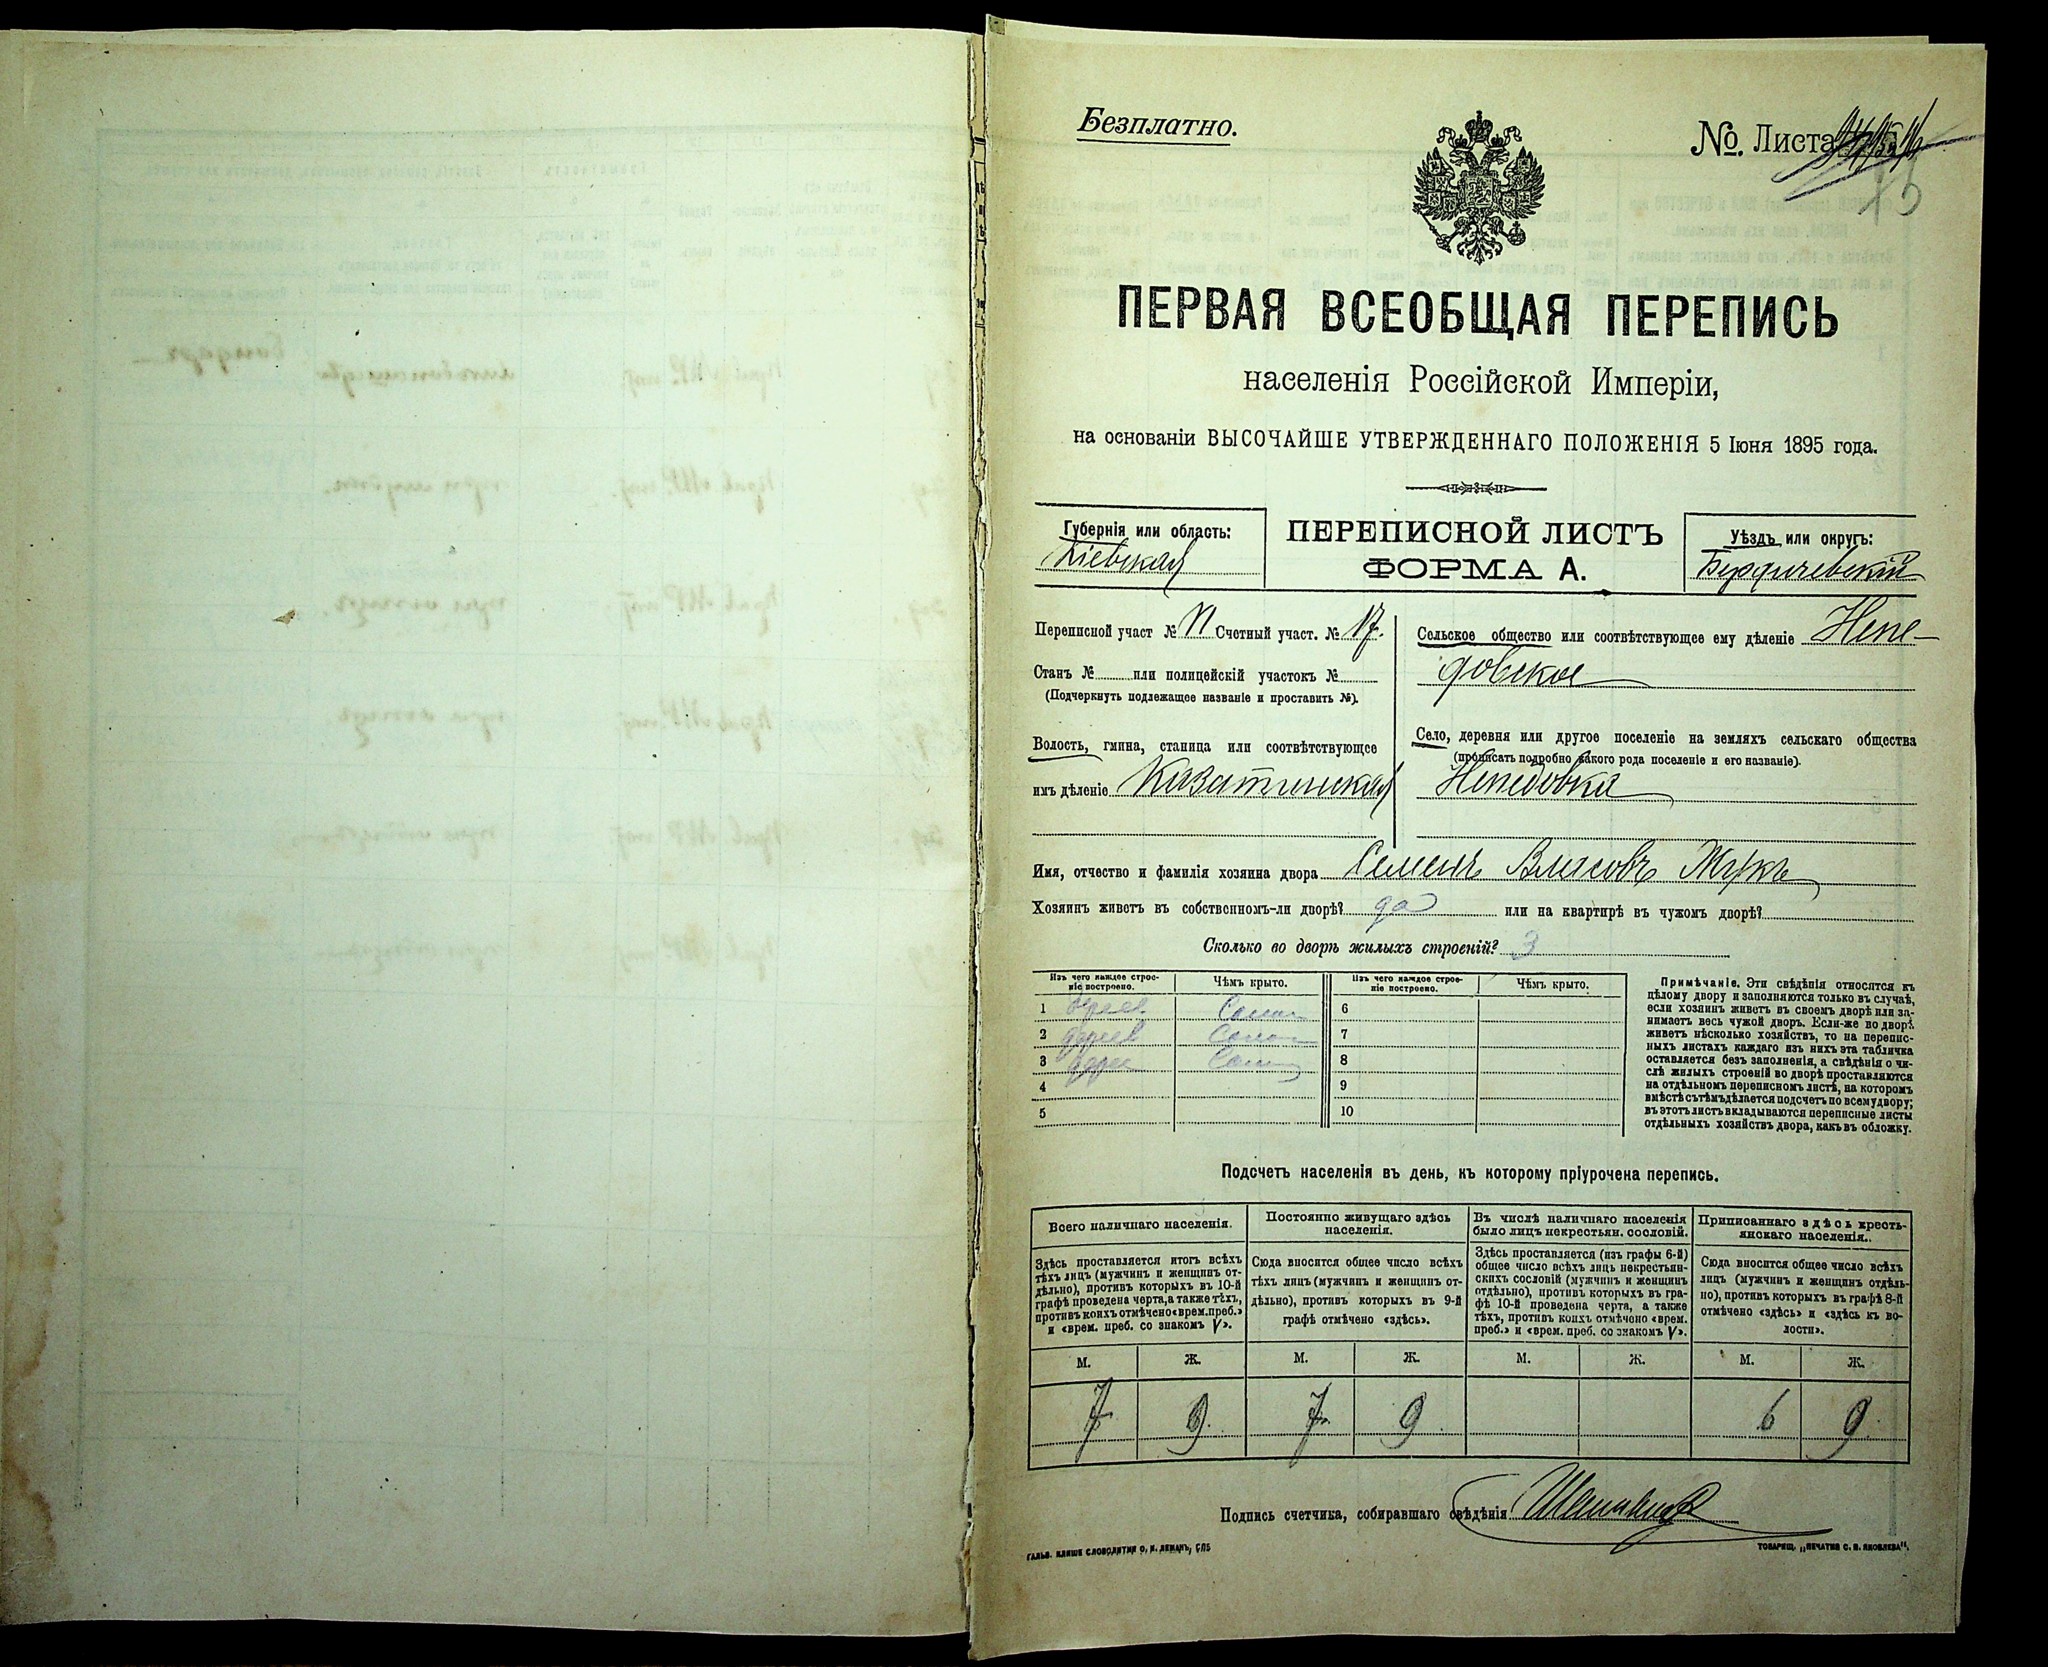 Безплатно.
№. Листа
ПЕРВАЯ ВСЕОБЩАЯ ПЕРЕПИСЬ
населенія Россійской Имперіи,
на основаніи ВЫСОЧАЙШЕ УТВЕРЖДЕННАГО ПОЛОЖЕНІЯ 5 Іюня 1895 года.
Губернія или область:
Кіевская
ПЕРЕПИСНОЙ ЛИСТЪ
ФОРМА А.
Уѣздъ или округъ:
Бердичевскій
Переписной участ № VI Счетный участ. № 17.
Станъ № или полицейскій участокъ №
(Подчеркнуть подлежащее названіе и проставить №).
Волость, гмина, станица или соотвѣтствующее
имъ дѣленіе Казатинская
Сельское общество или соотвѣтствующее ему дѣленіе Непе-
довское
Село, деревня или другое поселеніе на земляхъ сельскаго общества
(прописать подробно какого рода поселеніе и его названіе).
Непедовка
Имя, отчество и фамилія хозяина двора Семенъ Власовъ Жукъ
Хозяинъ живетъ въ собственномъ-ли дворѣ? да или на квартирѣ въ чужомъ дворѣ?
Сколько во дворѣ жилыхъ строеній? 3
Изъ чего каждое строе-
ніе построено.
Чѣмъ крыто.
Изъ чего каждое строе-
ніе построено.
Чѣмъ крыто.
1 дерев. Солом 6
2 дерев Солом 7
3 дерев Солом 8
4 9
5 10
Примѣчаніе. Эти свѣдѣнія относятся къ
цѣлому двору и заполняются только въ случаѣ,
если хозяинъ живетъ въ своемъ дворѣ или за-
нимаетъ весь чужой дворъ. Если-же во дворѣ
живетъ нѣсколько хозяйствъ, то на перепис-
ныхъ листахъ каждаго изъ нихъ эта табличка
оставляется безъ заполненія, а свѣдѣнія о чи-
слѣ жилыхъ строеній во дворѣ проставляются
на отдѣльномъ переписномъ листѣ, на которомъ
вмѣстѣ съ тѣмъ дѣлается подсчетъ по всему двору;
въ этотъ листъ вкладываются переписные листы
отдѣльныхъ хозяйствъ двора, какъ въ обложку.
Подсчетъ населенія въ день, къ которому пріурочена перепись.
Всего наличнаго населенія.
Здѣсь проставляется итогъ всѣхъ
тѣхъ лицъ (мужчинъ и женщинъ от-
дѣльно), противъ которыхъ въ 10-й
графѣ проведена черта, а также тѣхъ,
противъ коихъ отмѣчено «врем. преб.»
и «врем. преб. со знакомъ V».
Постоянно живущаго здѣсь
населенія.
Сюда вносится общее число всѣхъ
тѣхъ лицъ (мужчинъ и женщинъ от-
дѣльно), противъ которыхъ въ 9-й
графѣ отмѣчено «здѣсь».
Въ числѣ наличнаго населенія
было лицъ некрестьян. сословій.
Здѣсь проставляется (изъ графы 6-й)
общее число всѣхъ лицъ некрестьян-
скихъ сословій (мужчинъ и женщинъ
отдѣльно), противъ которыхъ въ гра-
фѣ 10-й проведена черта, а также
тѣхъ, противъ коихъ отмѣчено «врем.
преб.» и «врем. преб. со знакомъ V».
Приписаннаго здѣсь кресть-
янскаго населенія.
Сюда вносится общее число всѣхъ
лицъ (мужчинъ и женщинъ отдѣль-
но), противъ которыхъ въ графѣ 8-й
отмѣчено «здѣсь» и «здѣсь къ во-
лости».
М. Ж. М. Ж. М. Ж. М. Ж.
7 9. 7 9. 6 9.
Подпись счетчика, собиравшаго свѣдѣнія
ГАЛЬВ. КЛИШЕ СЛОВОЛИТНИ О. И. ЛЕМАНЪ, СПБ
ТОВАРИЩ. „ПЕЧАТНЯ С. П. ЯКОВЛЕВА".